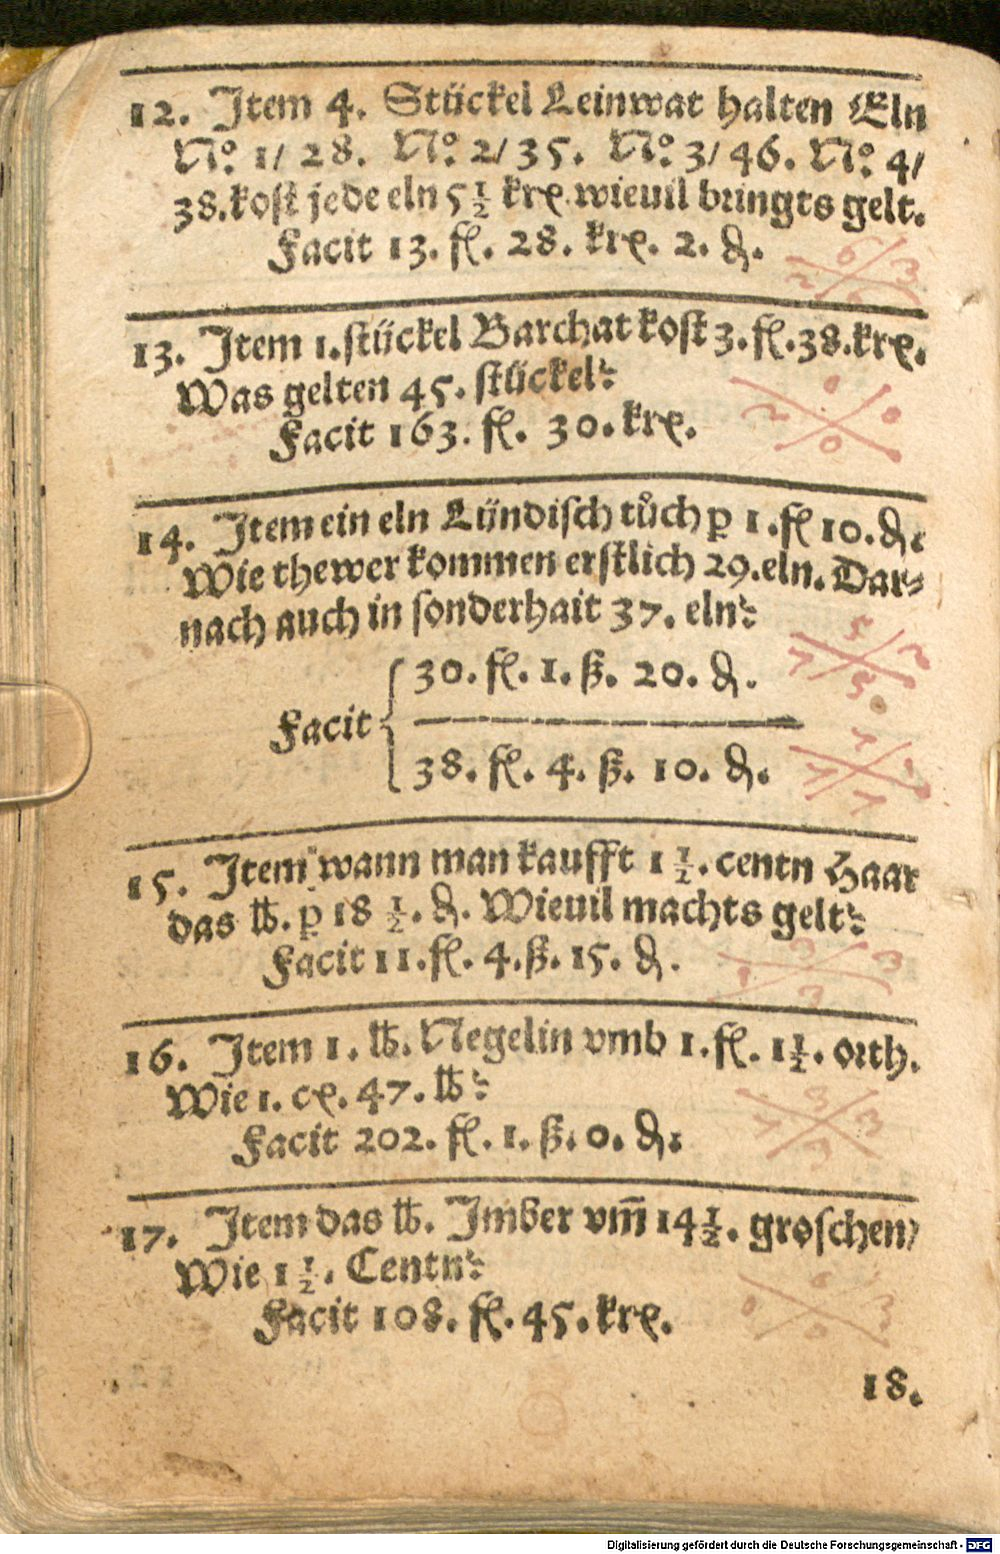 12. Item 4. Stückel Leinwat halten Eln
N° 1/ 28. N° 2/ 35. N° 3/ 46. N° 4/
38. kost jede eln 5 1/2 krꝭ. wieuil bringts gelt.
Facit 13. fl. 28. krꝭ. 2. ₰.
6 3 2 6
13. Item 1. stückel Barchat kost 3. fl. 38. krꝭ.
Was gelten 45. stückel:
Facit 163. fl. 30. krꝭ.
0 2 0 0
14. Item ein eln Lündisch tůch ꝑ 1. fl 10. ₰:
Wie thewer kommen erstlich 29. eln. Dar⸗
nach auch in sonderhait 37. eln:
5 7 2 5
Facit
30. fl. 1. ß. 20. ₰.
38. fl. 4. ß. 10. ₰.
1 7 1
15. Item wann man kaufft 1 1/2. centn Haar
das ℔. ꝑ 18 1/2. ₰. Wieuil machts gelt:
Facit 11. fl. 4. ß. 15. ₰.
3 1 3 3
16. Item 1. ℔. Negelin vmb 1. fl. 1 1/2. orth.
Wie 1. cꝭ. 47. ℔:
Facit 202. fl. 1. ß. 0. ₰:
3 7 3 3
17. Item das ℔. Imber vm̄ 14 1/2. groschen/
Wie 1 1/2. Centn:
Facit 108. fl. 45. krꝭ.
0 3 0
18.
Digitalisierung gefördert durch die Deutsche Forschungsgemeinschaft - DFG